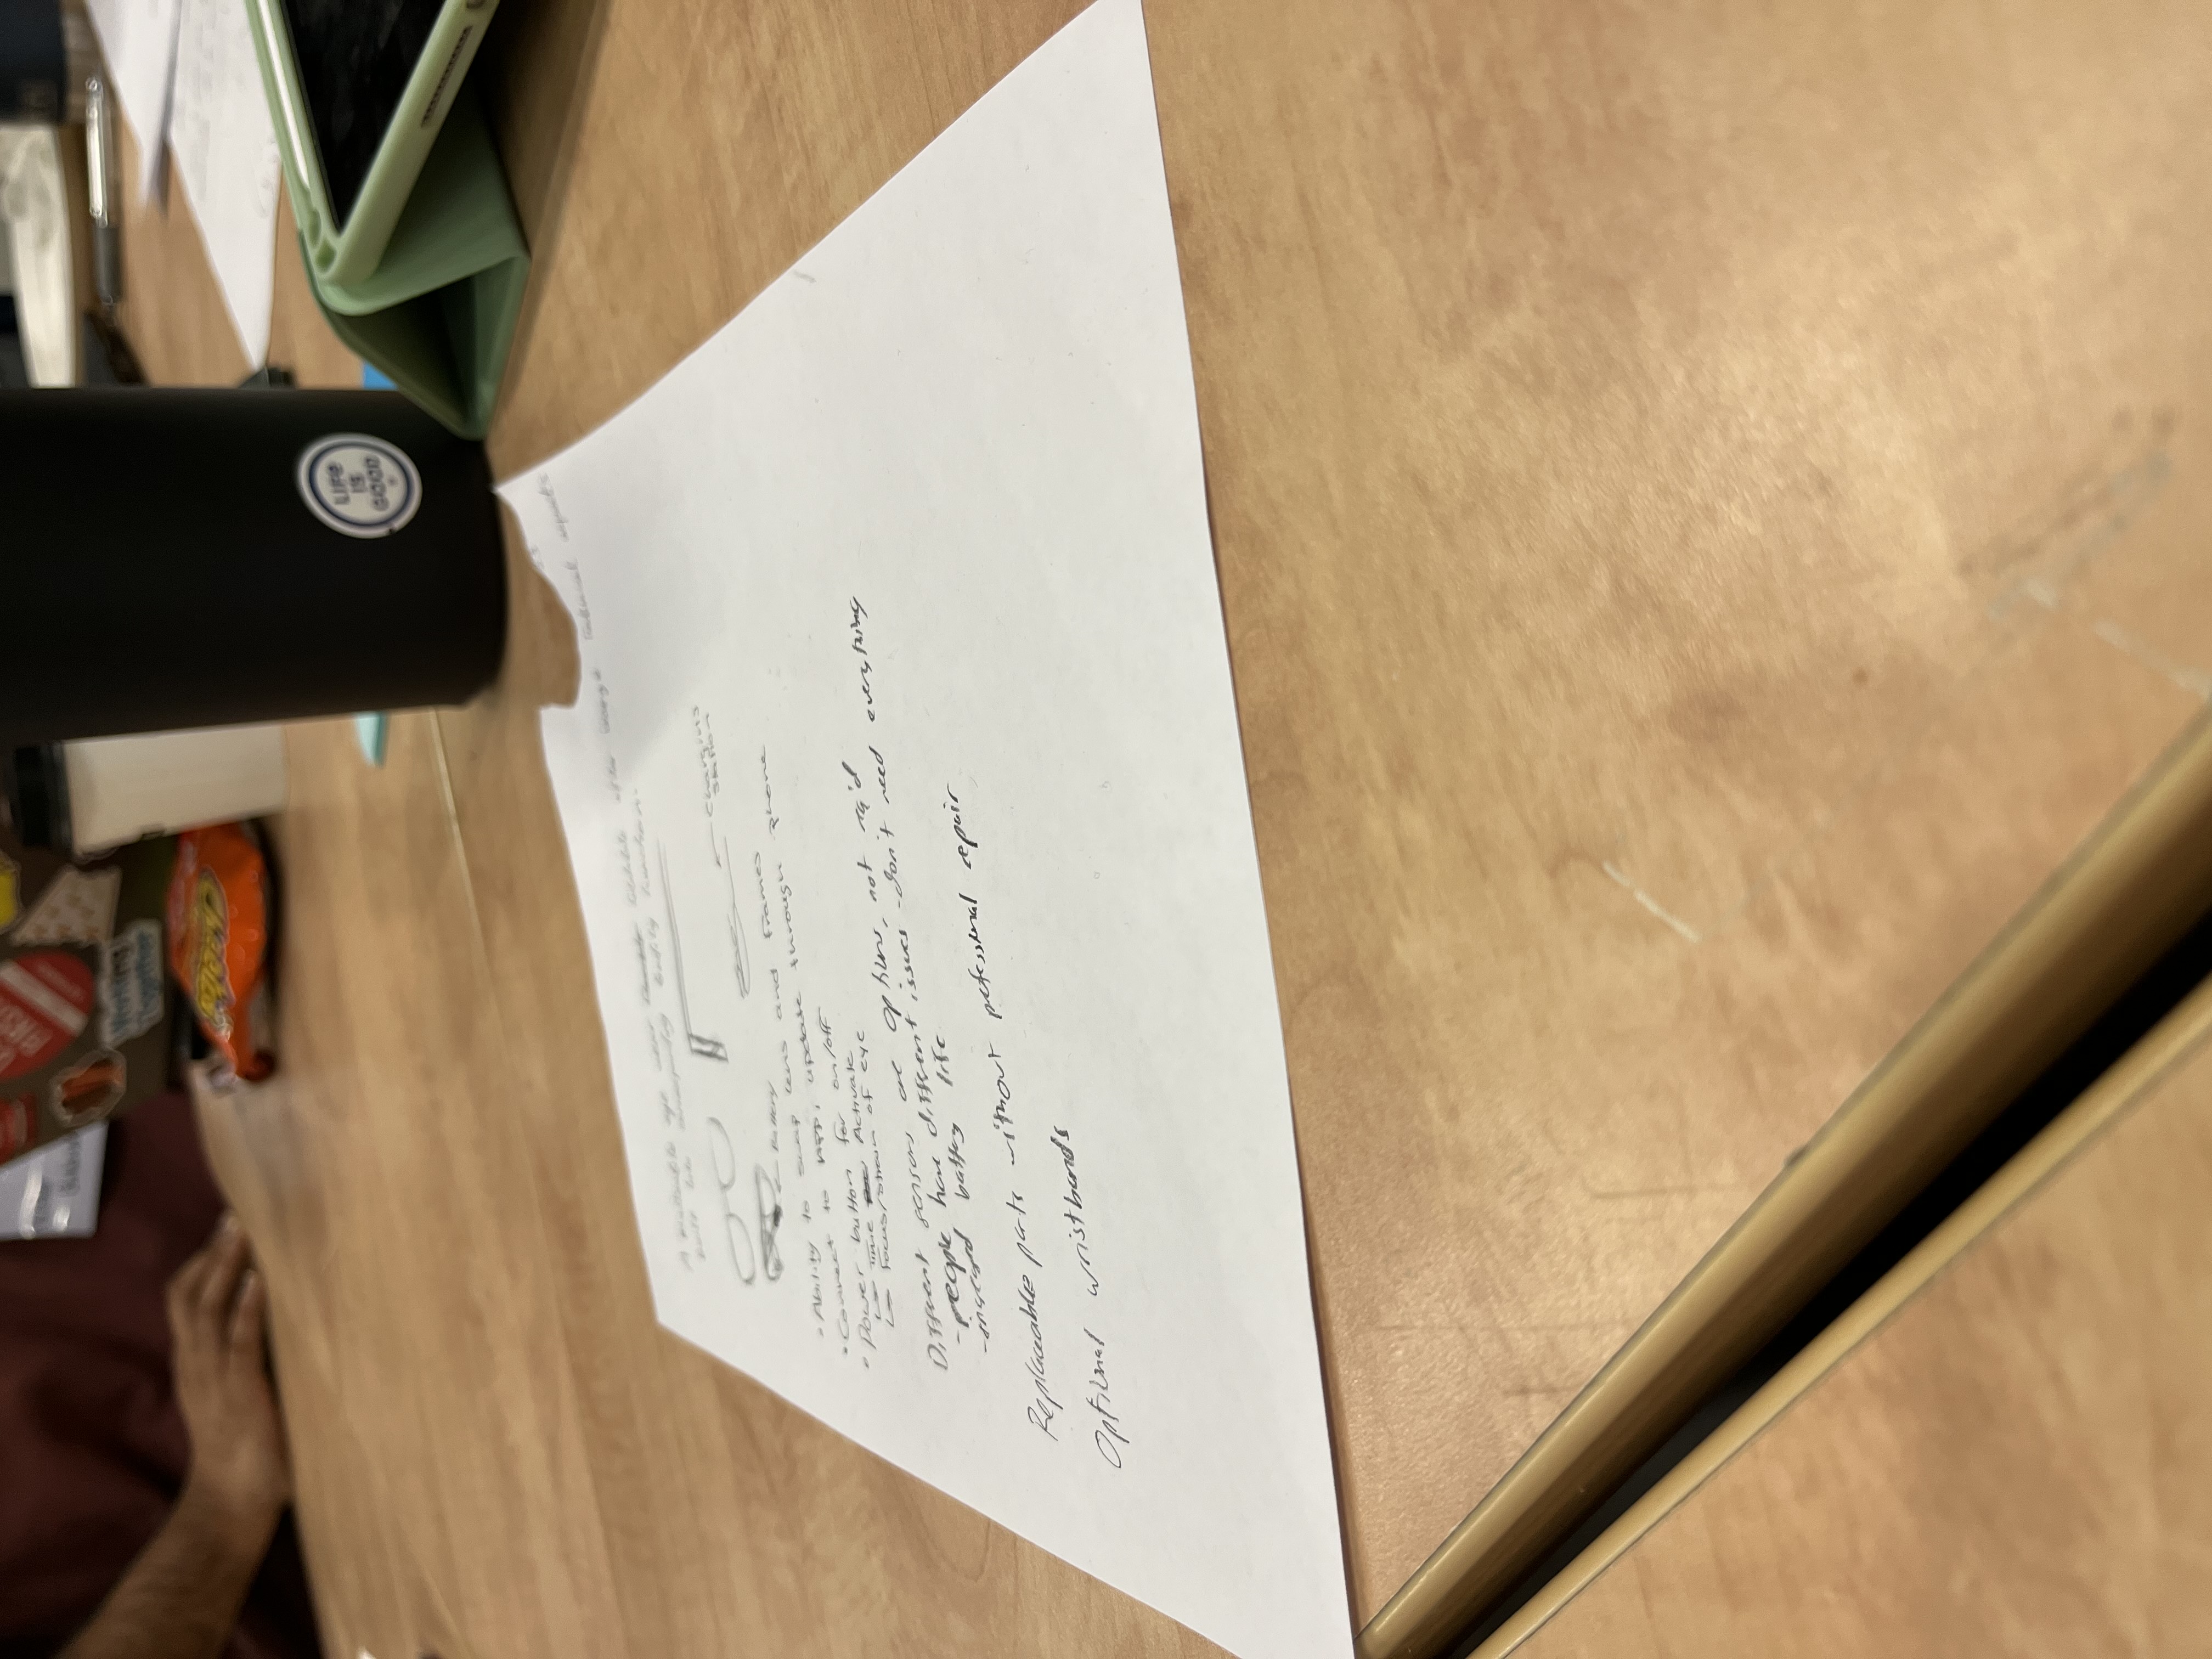 Working
Together
Cheetos
LIFE
IS
GOOD
A eye wear
built
Charging
Station
Battery
• Ability to swap lens and frames
• Connect to app, update through phone
• Power button for on/off
Time Activate
Focus/strain of eye
Different sensors are options, not rq'd
- people have different issues - don't need everything
- increased battery life
Replaceable parts without professional repair
Optional wristbands